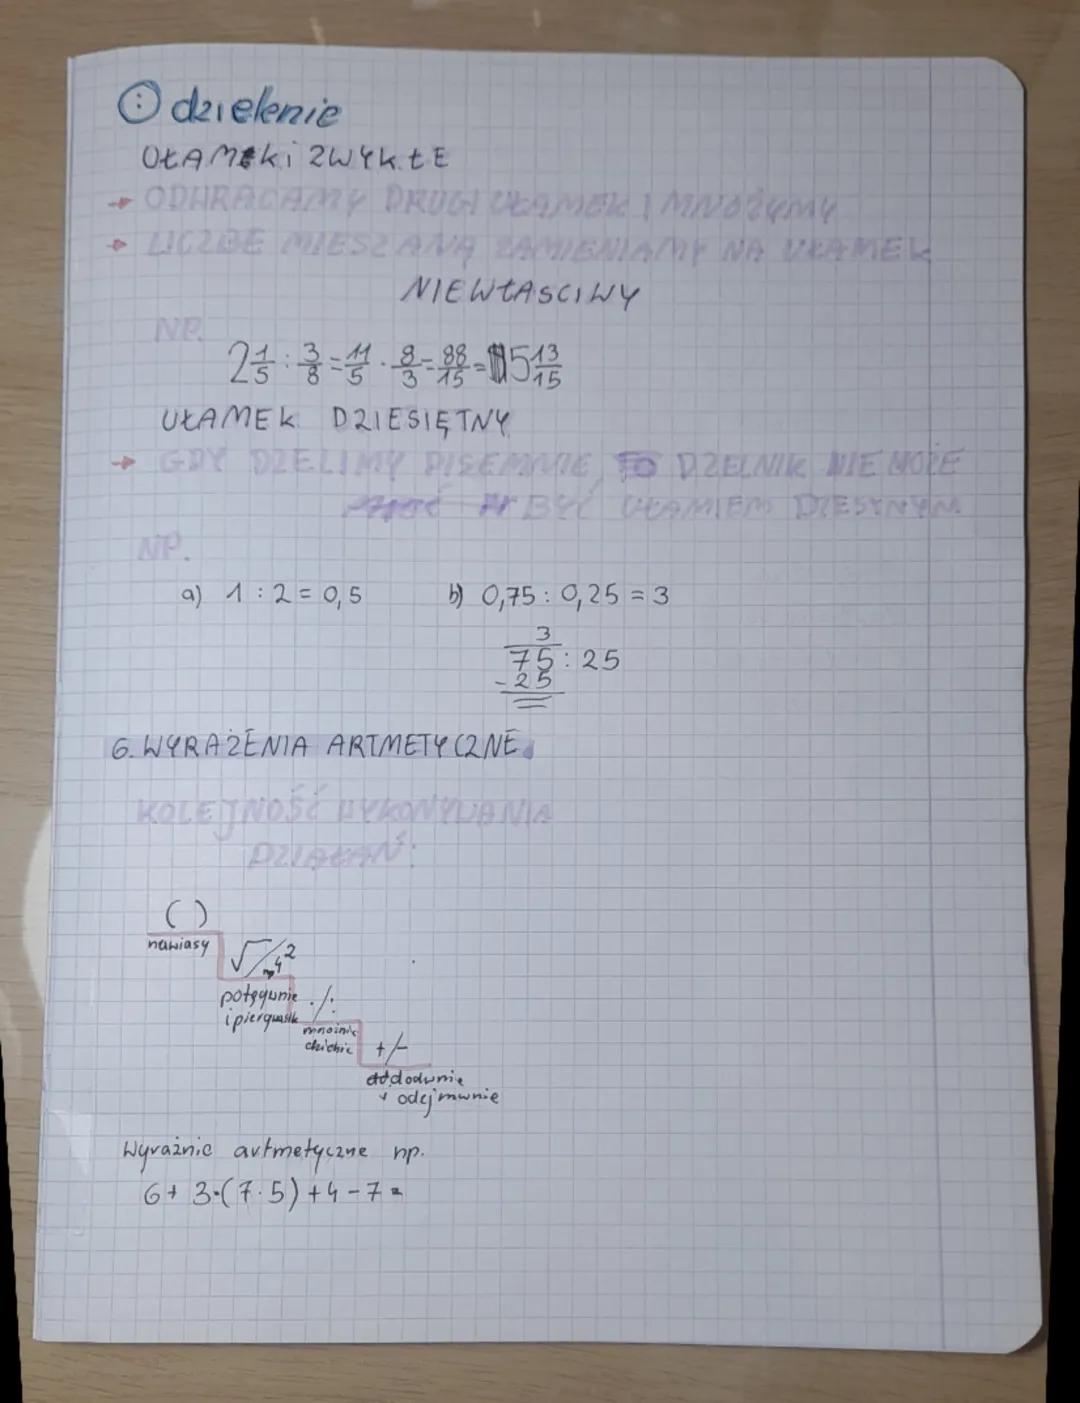 : dzielenie
UŁAMEKi ZWYKŁE
→ ODWRACAMY DRUGI UŁAMEK I MNOŻYMY
→ LICZBĘ MIESZANĄ ZAMIENIAMY NA UŁAMEK
NIEWŁASCIWY
NP.
2 1/5 : 3/8 = 11/5 · 8/3 = 88/15 = 5 13/15
UŁAMEK DZIESIĘTNY
→ GDY DZELIMY PISEMNIE, DZELNIK NIE MOŻE
BYĆ UŁAMIEM DZESYNYM
NP.
a) 1 : 2 = 0,5 b) 0,75 : 0,25 = 3
3
75 : 25
- 25
6. WYRAŻENIA ARTMETYCZNE
KOLEJNOŚĆ WYKONYWANIA
DZIAŁAŃ:
( )
nawiasy
√ / 4²
potęgwnie · / :
i pierwiastk mnożnie
dzielnie + / -
dodawnie
i odejmwnie
Wyrażnie artmetyczne np.
6 + 3·(7·5) + 4 - 7 =